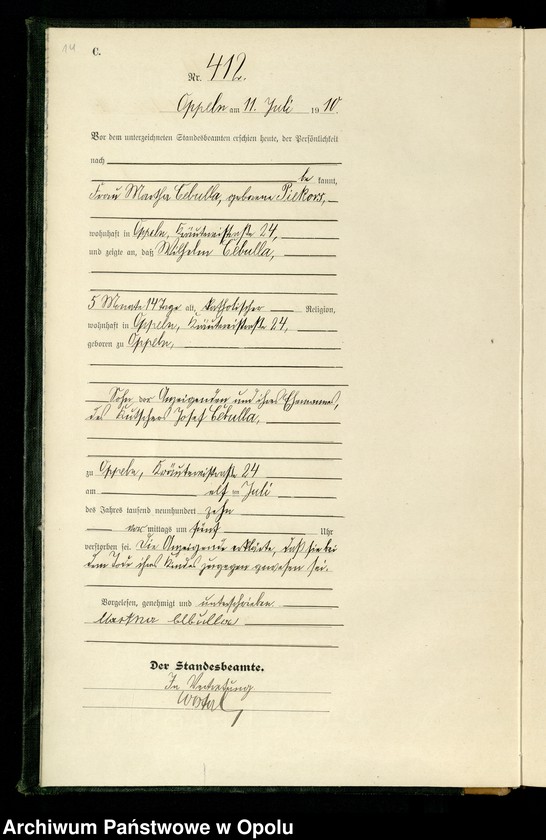 14
C.
Nr. 412.
Oppeln am 11. Juli 1910.
Vor dem unterzeichneten Standesbeamten erschien heute, der Persönlichkeit
nach
be kannt,
Frau Martha Cebulla, geborene Piekors,
wohnhaft in Oppeln, Kräutereistraße 24,
und zeigte an, daß Wilhelm Cebulla,
5 Monate 14 Tage alt, katholischer Religion,
wohnhaft in Oppeln, Kräutereistraße 24,
geboren zu Oppeln,
Sohn der Anzeigenden und ihres Ehemannes,
des Kutschers Josef Cebulla,
zu Oppeln, Kräutereistraße 24
am elf ten Juli
des Jahres tausend neunhundert zehn
vor mittags um fünf Uhr
verstorben sei. Die Anzeigende erklärte, daß sie bei
dem Tode ihres Kindes zugegen gewesen sei.
Vorgelesen, genehmigt und unterschrieben
Martha Cebulla
Der Standesbeamte.
In Vertretung
Archiwum Państwowe w Opolu